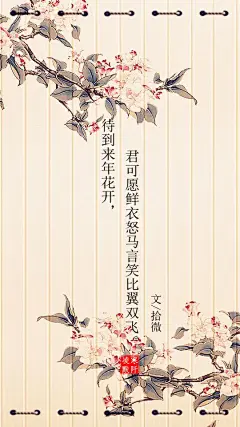 待到来年花开，
君可愿鲜衣怒马言笑比翼双飞。
文/拾微